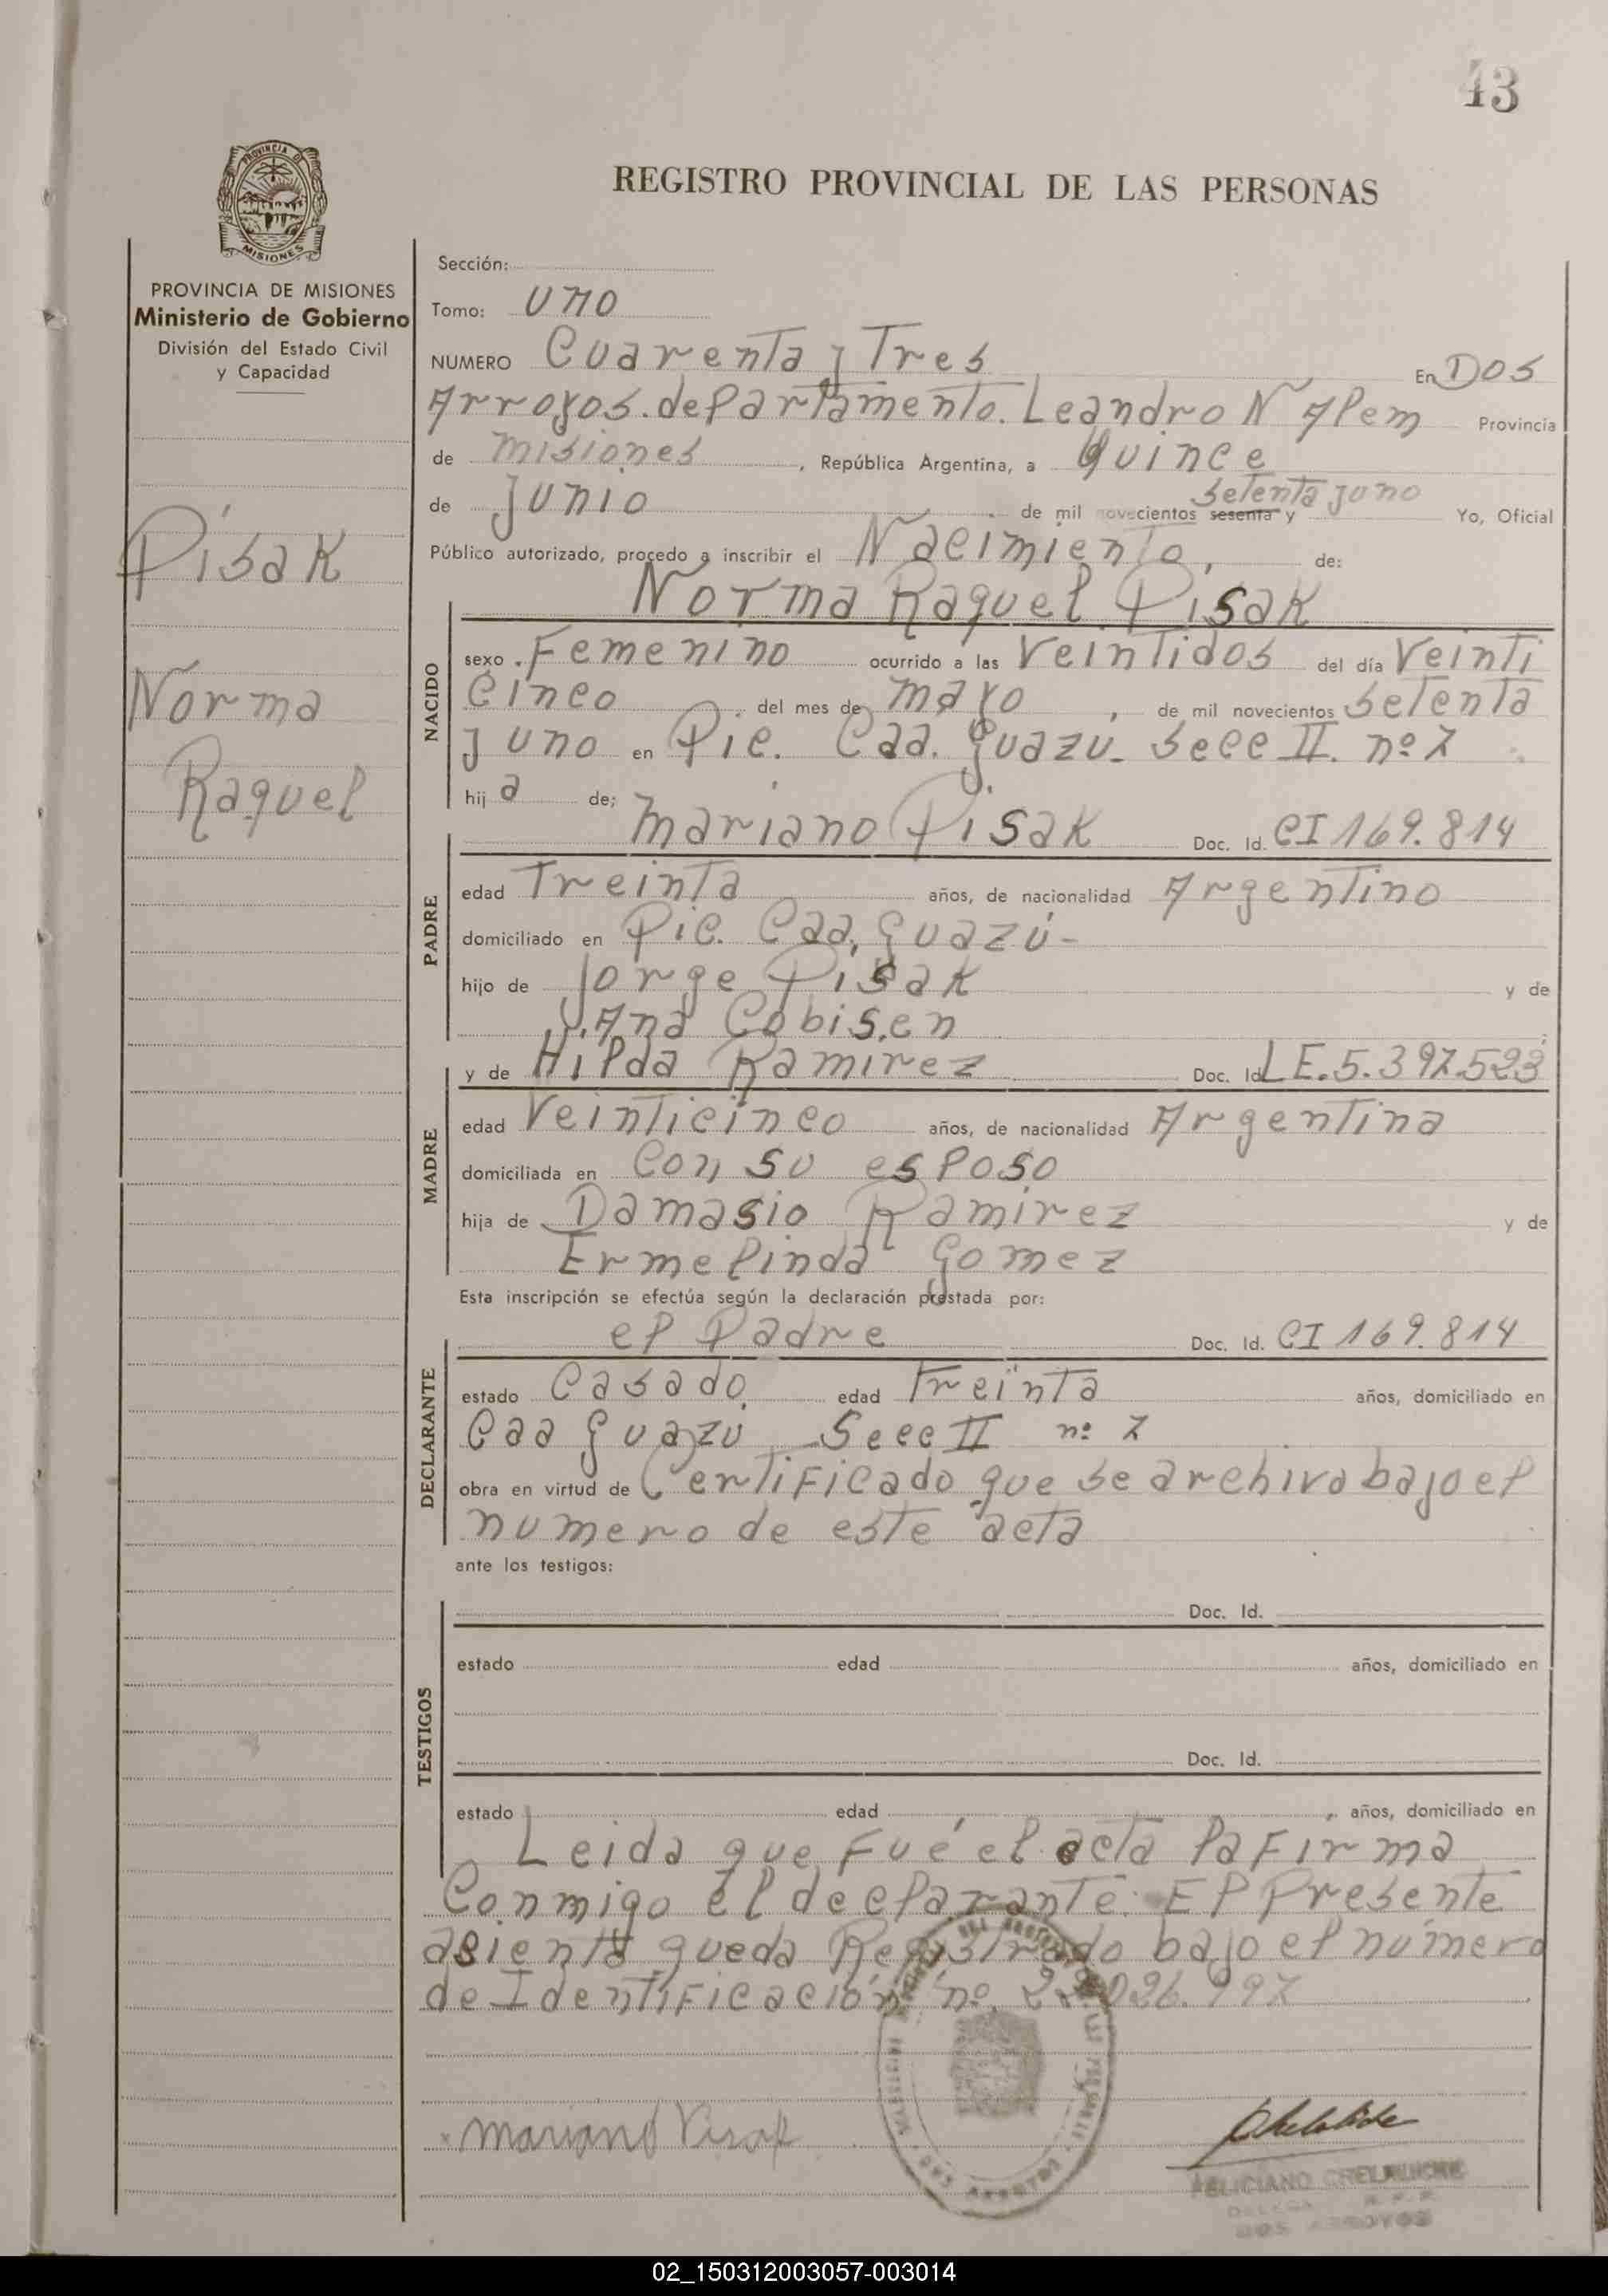 43
PROVINCIA DE
MISIONES
REGISTRO PROVINCIAL DE LAS PERSONAS
PROVINCIA DE MISIONES
Ministerio de Gobierno
División del Estado Civil
y Capacidad
Pisak
Norma
Raquel
Sección:
Tomo: uno
NUMERO Cuarenta y Tres En Dos
Arroyos. departamento. Leandro N Alem Provincia
de misiones, República Argentina, a quince
de Junio de mil novecientos sesenta y setenta y uno Yo, Oficial
Público autorizado, procedo a inscribir el Nacimiento, de:
Norma Raquel Pisak
NACIDO
sexo Femenino ocurrido a las Veintidos del día Veinti
Cinco del mes de mayo, de mil novecientos setenta
y uno en Pic. Caa. Guazu. Secc II. nº 7
hija de;
Mariano Pisak Doc. Id. CI 169.814
PADRE
edad Treinta años, de nacionalidad Argentino
domiciliado en Pic. Caa. Guazú-
hijo de Jorge Pisak y de
Ana Cobisen
y de Hilda Ramirez Doc. Id LE.5.397.523
MADRE
edad Veinticinco años, de nacionalidad Argentina
domiciliada en Con su esposo
hija de Damasio Ramirez y de
Ermelinda Gomez
Esta inscripción se efectúa según la declaración prestada por:
el Padre Doc. Id. CI 169.814
DECLARANTE
estado Casado edad Treinta años, domiciliado en
Caa Guazú Secc II nº 7
obra en virtud de Certificado que se archiva bajo el
numero de este acta
ante los testigos:
Doc. Id.
TESTIGOS
estado edad años, domiciliado en
Doc. Id.
estado edad, años, domiciliado en
Leida que fué el acta la firma
Conmigo el declarante: El Presente
asiento queda Registrado bajo el número
de Identificación nº. 22.026.997
Mariano Pisak
FELICIANO
DOS ARROYOS
02_150312003057-003014